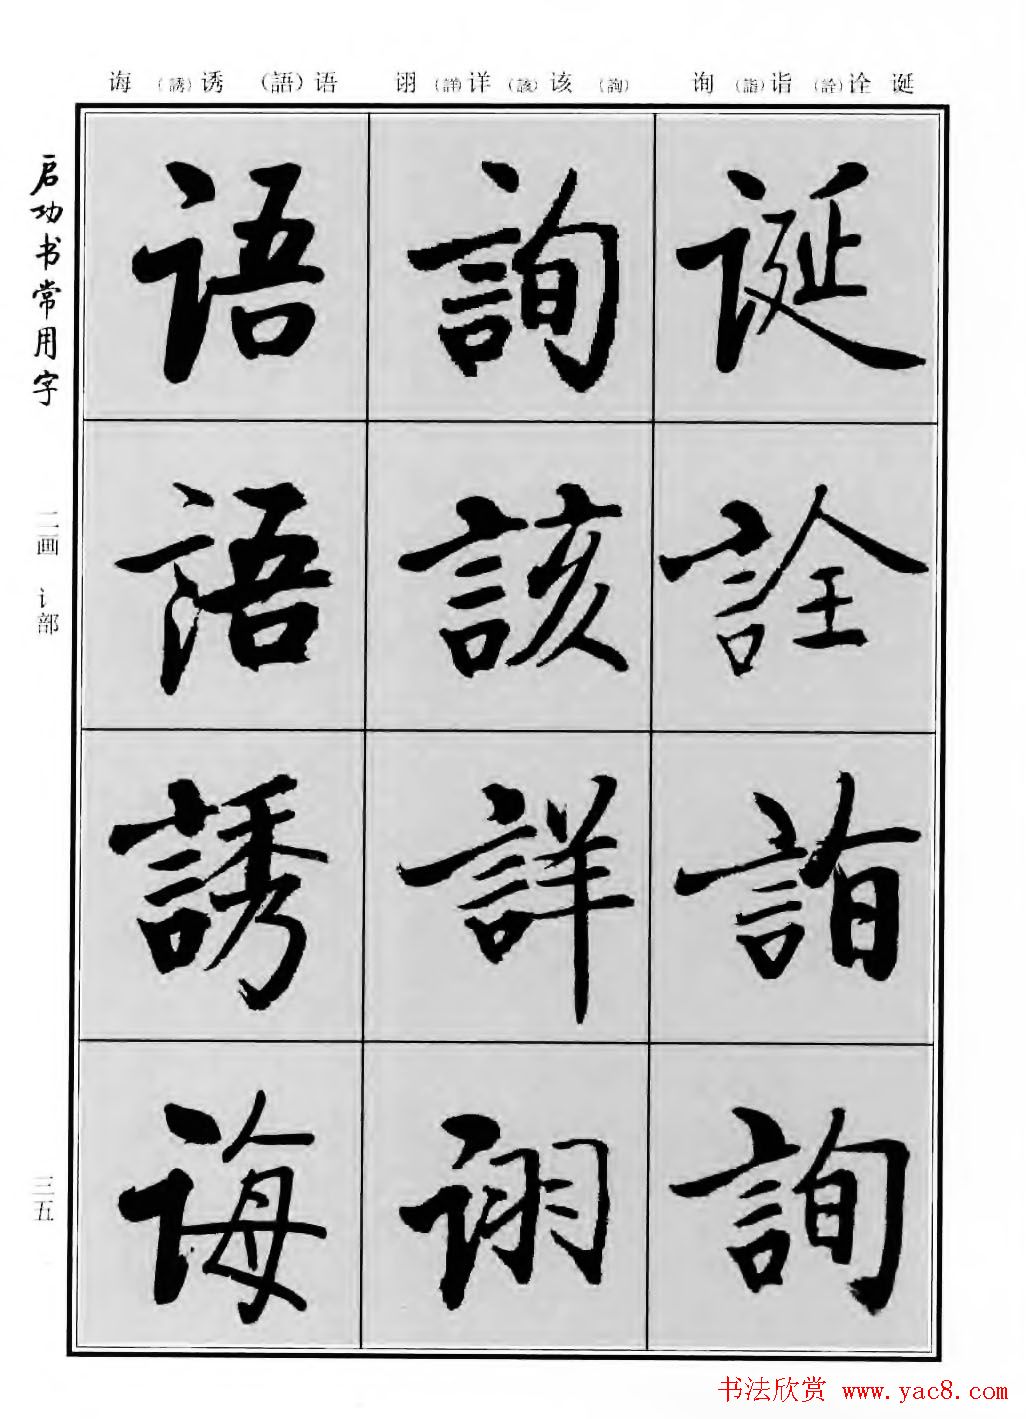 诲 (誘)诱 (語)语 诩 (詳)详 (該)该 (詢) 询 (詣)诣 (詮)诠 诞
启功书常用字
二画 讠部
三五
诞
詮
詣
詢
詢
該
詳
诩
语
語
誘
诲
书法欣赏 www.yac8.com